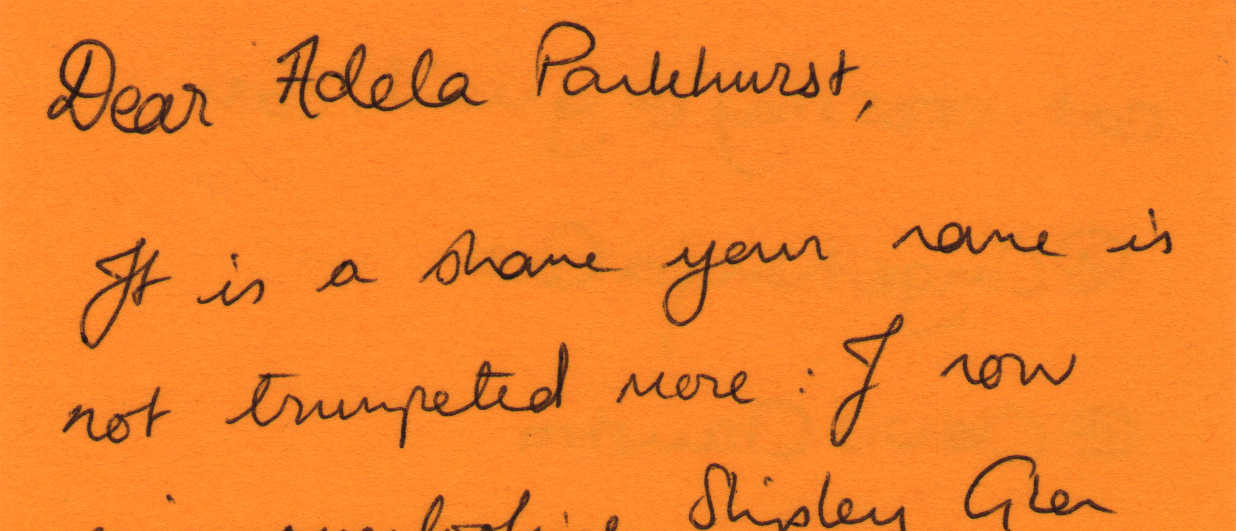 Dear Adela Pankhurst,
It is a shame your name is
not trumpeted more : I now
overlooking Shipley Glen